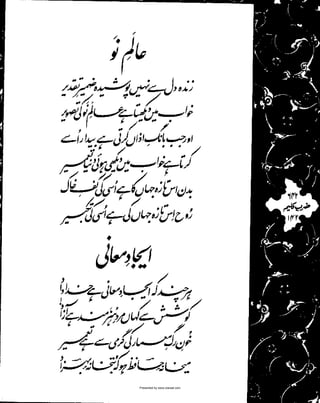 عالمِ نو
زندہ دل سے نہیں پوشیدہ ضمیرِ تقدیر
خواب میں دیکھتا ہے عالمِ نو کی تصویر
اور جب بانگِ اذاں کرتی ہے بیدار اسے
کرتا ہے خواب میں دیکھی ہوئی دنیا تعمیر
بدن اس تازہ جہاں کا ہے اسی کی کفِ خاک
روح اس تازہ جہاں کی ہے اسی کی تکبیر
ایجادِ معانی
ہر چند کہ ایجادِ معانی ہے خداداد
کوشش سے کہاں مردِ ہنرمند ہے آزاد
خونِ رگِ معمار کی گرمی سے ہے تعمیر
میخانۂ حافظ ہو کہ بتخانۂ بہزاد
ضربِ کلیم
Presented by www.ziaraat.com